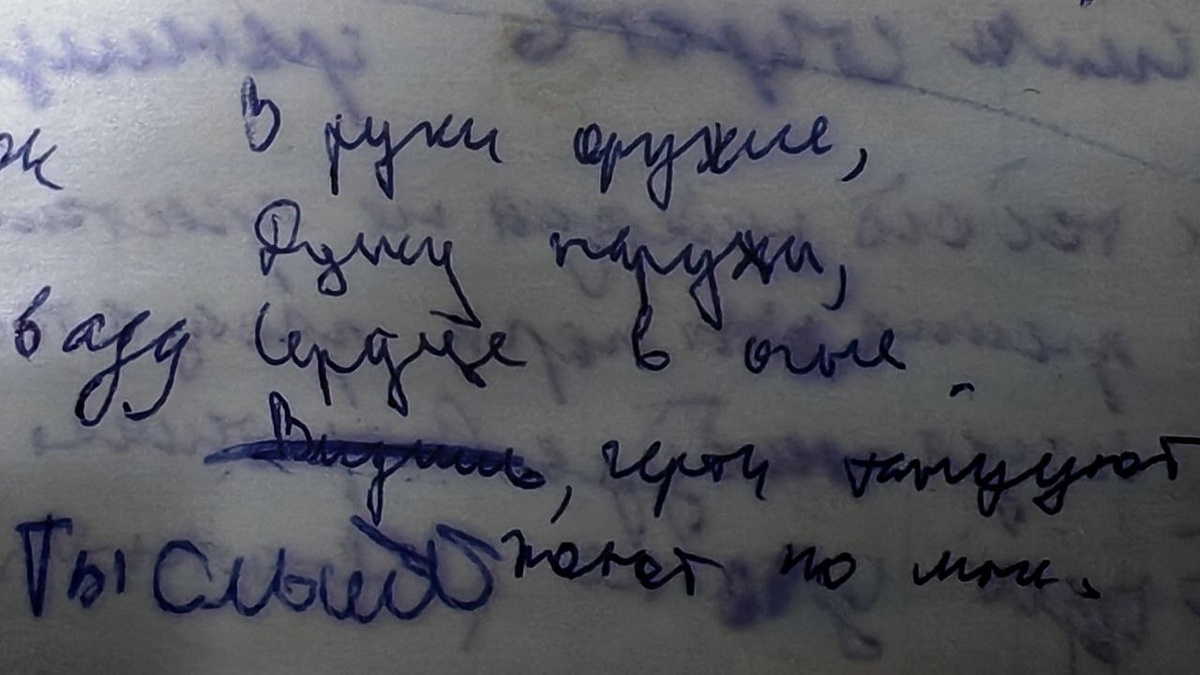 В руки оружие,
Душу наружи,
в аду Сердце в огне
Видишь, черти танцуют
Ты поют по мне.